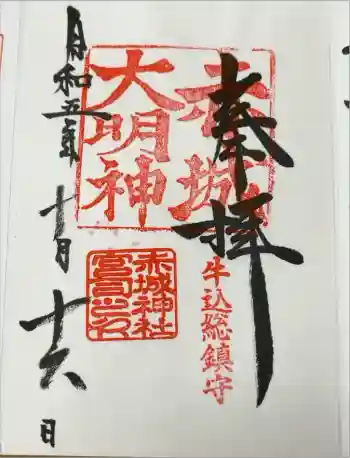 奉拝
赤城
大明神
牛込総鎮守
赤城神社
宮司之印
令和五年 十月 十六日